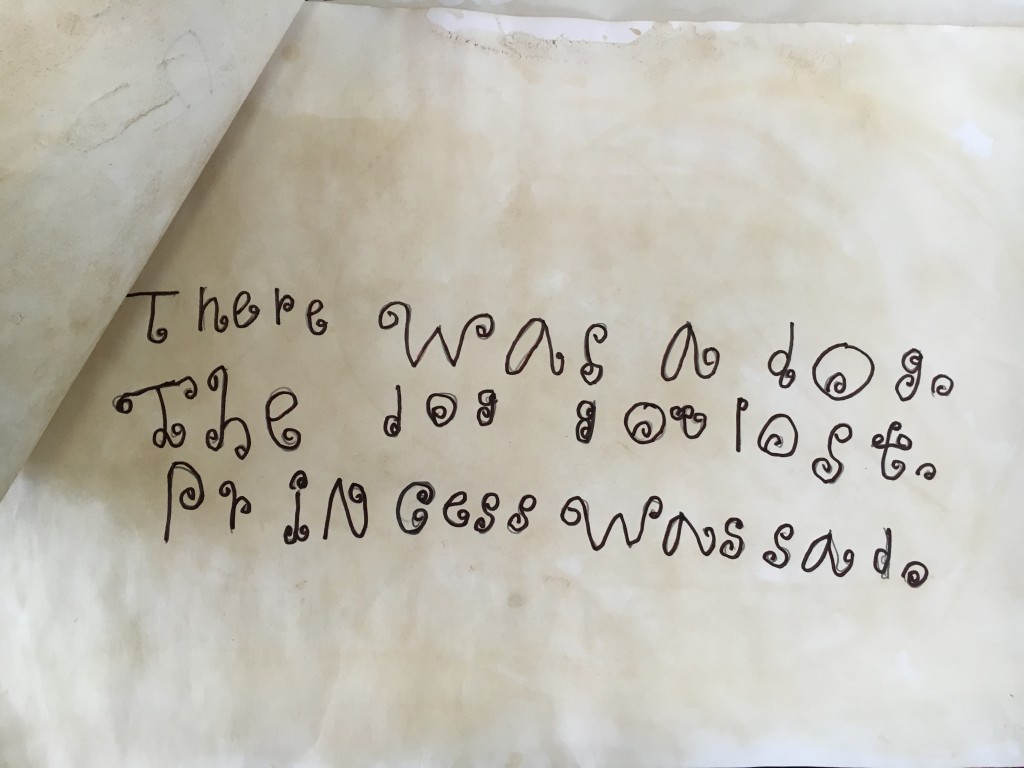 There was a dog.
The dog got lost.
Princess was sad.